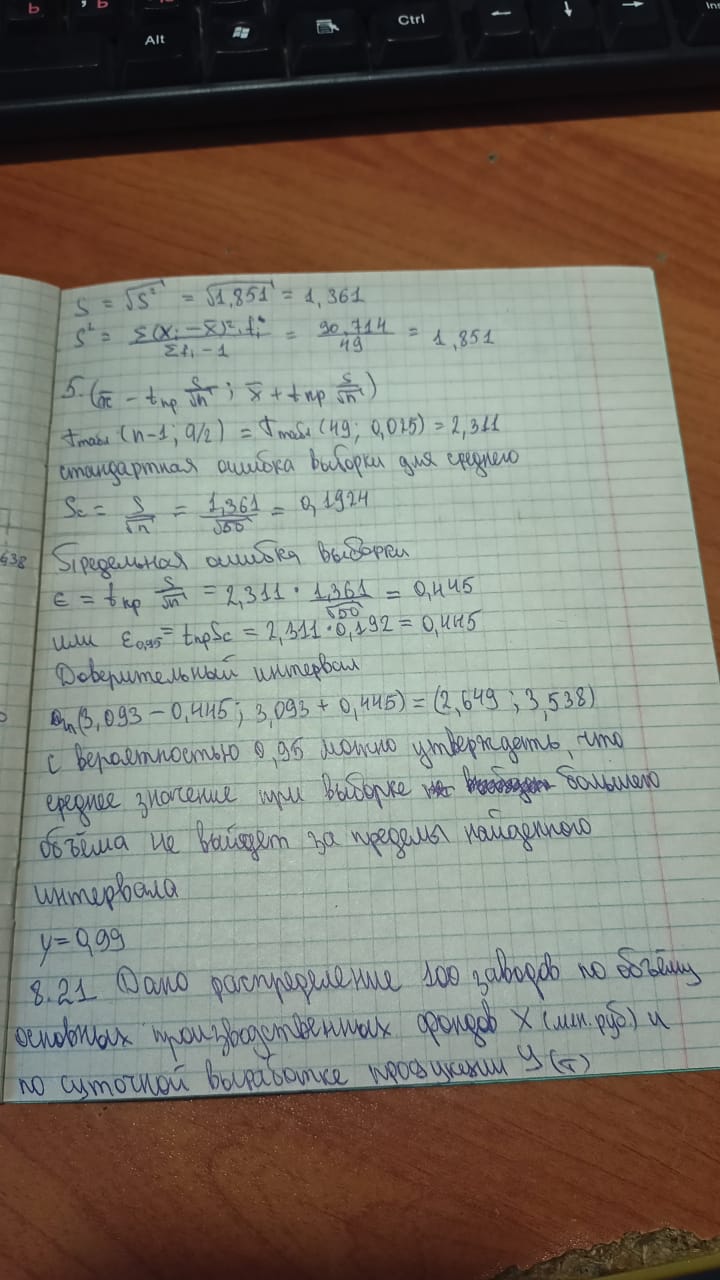 Alt
Ctrl
S = √S² = √1,851 = 1,361
S² = Σ(xᵢ − x̄)²·fᵢ / Σfᵢ − 1 = 90,714 / 49 = 1,851
5. (x̄ − tкр S/√n ; x̄ + tкр S/√n)
tтабл (n−1; α/2) = tтабл (49; 0,025) = 2,311
стандартная ошибка выборки для среднего
Sc = S/√n = 1,361/√50 = 0,1924
Предельная ошибка выборки
ε = tкр S/√n = 2,311 · 1,361/√50 = 0,445
или ε0,95 = tкрSc = 2,311·0,192 = 0,445
Доверительный интервал
(3,093 − 0,445; 3,093 + 0,445) = (2,649; 3,538)
с вероятностью 0,95 можно утверждать, что
среднее значение при выборке большего
объёма не выйдет за пределы найденного
интервала
γ = 0,99
8.21 Дано распределение 100 заводов по объёму
основных производственных фондов X (млн. руб.) и
по суточной выработке продукции У (т)